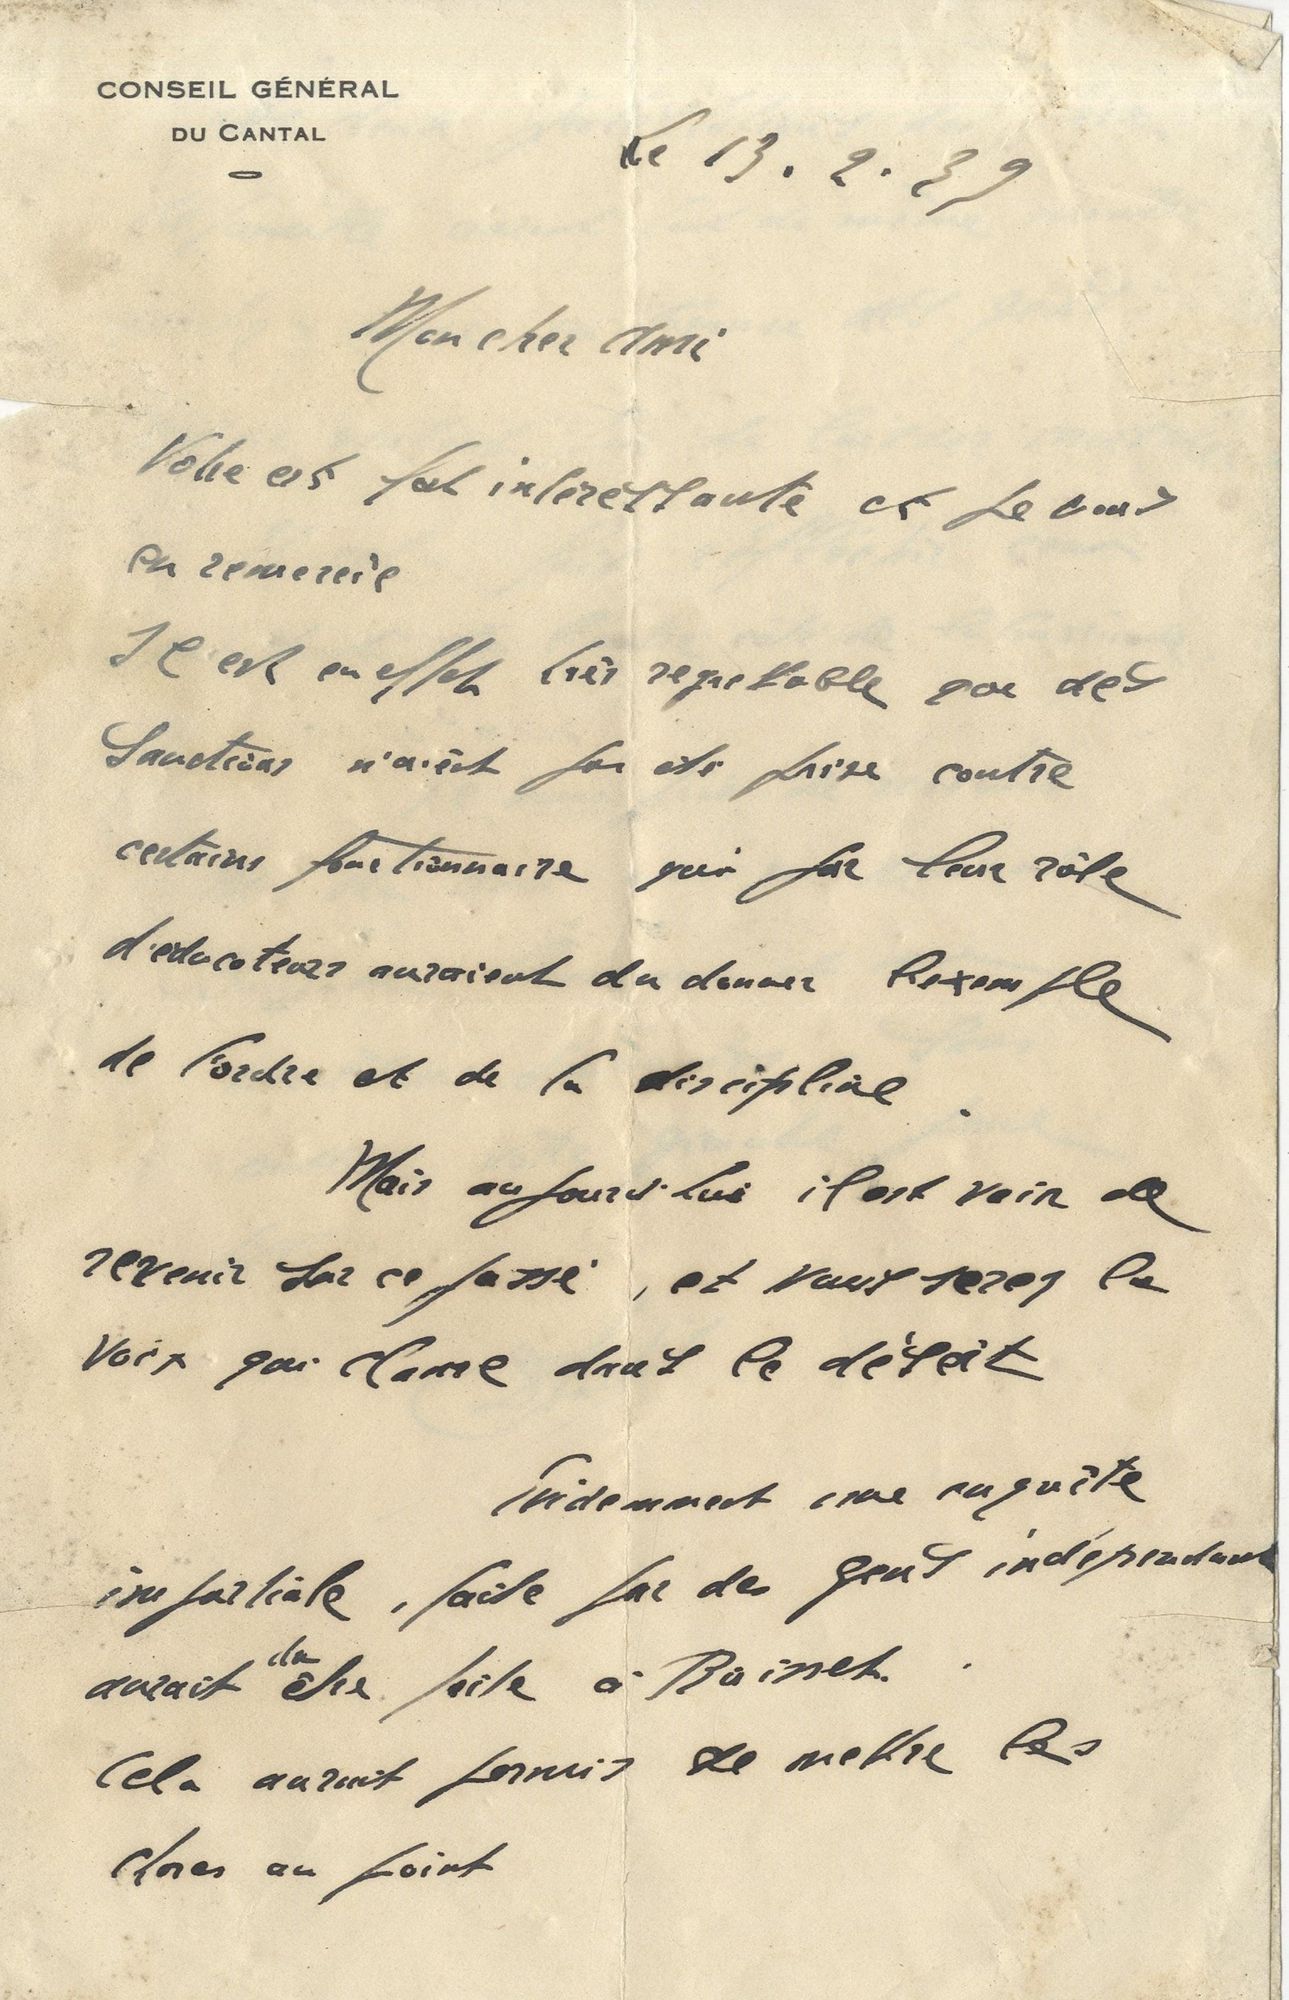 CONSEIL GÉNÉRAL
DU CANTAL
Le 13. 2. 39
Mon cher ami
Votre est fort intéressante et je vous
en remercie
Il est en effet très regrettable que des
sanctions n'aient pas été prise contre
certains fonctionnaire qui par leur rôle
d'educateurs auraient du donner l'exemple
de l'ordre et de la discipline.
Mais aujourd'hui il est vain de
revenir sur ce passé, et vous serez la
voix qui clame dans le désert
Evidemment une enquête
impartiale, faite par des gens indépendant
aurait du être faite à Boisset.
Cela aurait permis de mettre les
choses au point